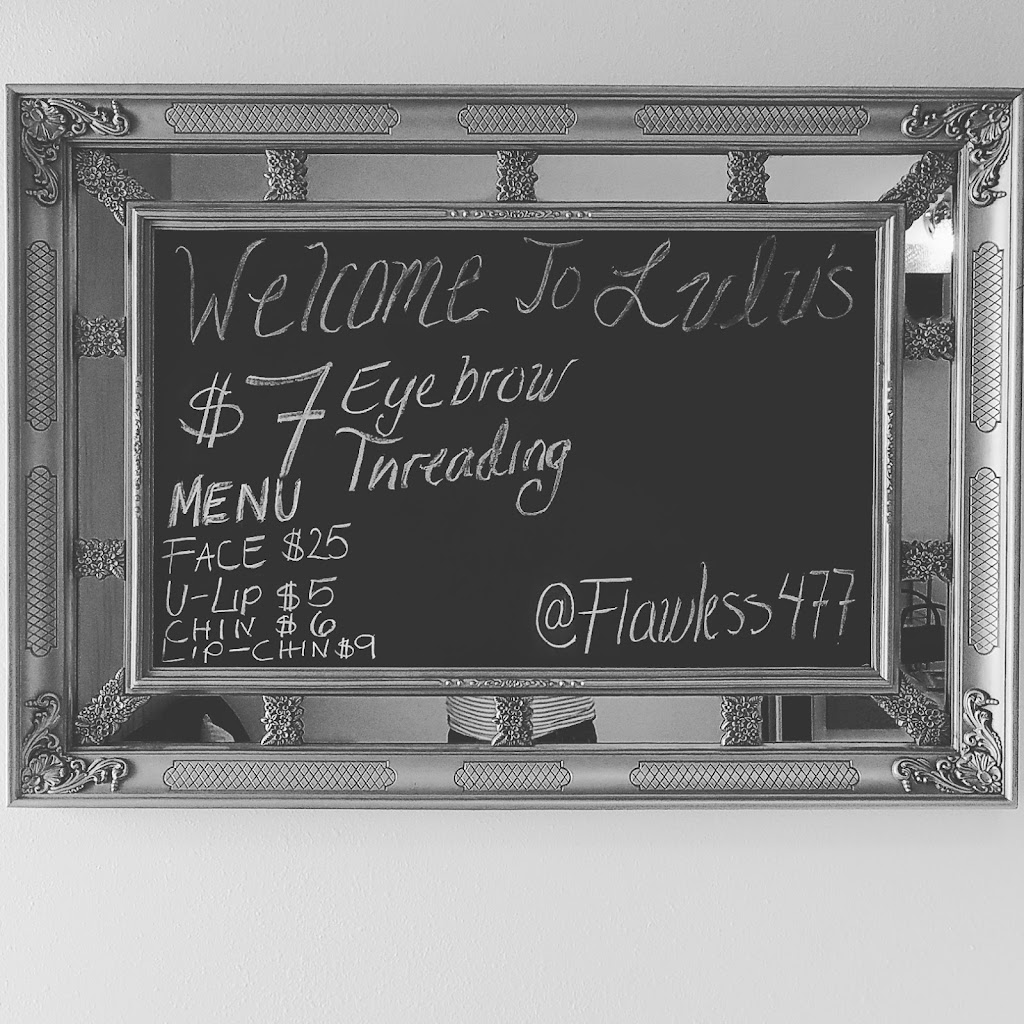 Welcome To Lulu's
$7 Eyebrow
Threading
MENU
FACE $25
U-LIP $5
CHIN $6
LIP-CHIN $9
@Flawless477